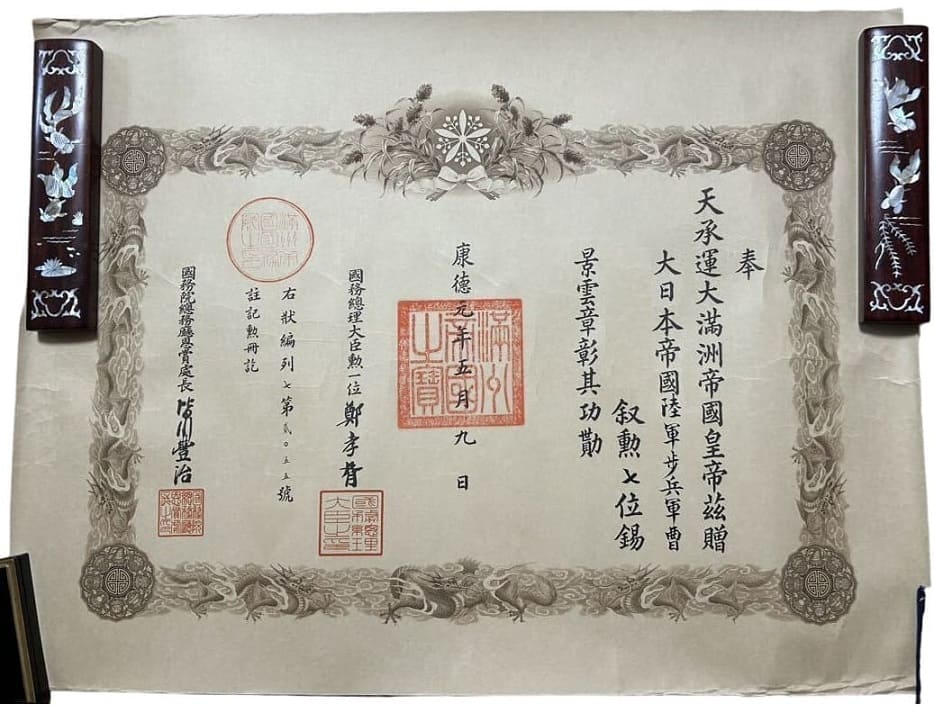 奉
天承運大滿洲帝國皇帝茲贈
大日本帝國陸軍步兵軍曹
叙勲七位錫
景雲章彰其功勛
康德元年五月九日
滿洲帝國之寶
國務總理大臣勲一位鄭孝胥
國務總理大臣之印
右狀編列七第貳〇五五號
註記勲冊訖
國務院總務廳恩賞處長皆川豐治